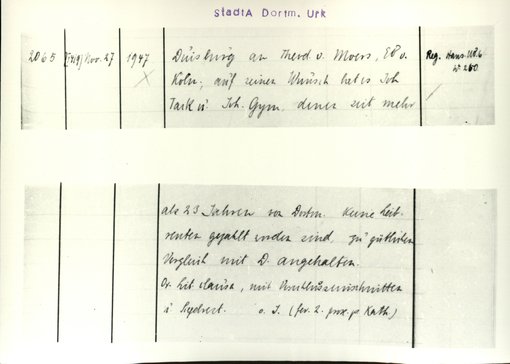 StadtA Dortm. Urk
2065 [1419] Nov. 27 1947 Duisburg an Theod. v. Moers, EB v. Reg. Hans. UB 6
Köln, auf seinen Wunsch hat es Joh. n. 260
Tack u. Joh. Gym, denen seit mehr
als 23 Jahren von Dortm. keine Leib-
renten gezahlt worden sind, zu gütlichen
Vergleich mit D. angehalten.
Or. lit. clausa, mit
u. o. J. (fer. 2. prox. p. Kath.)